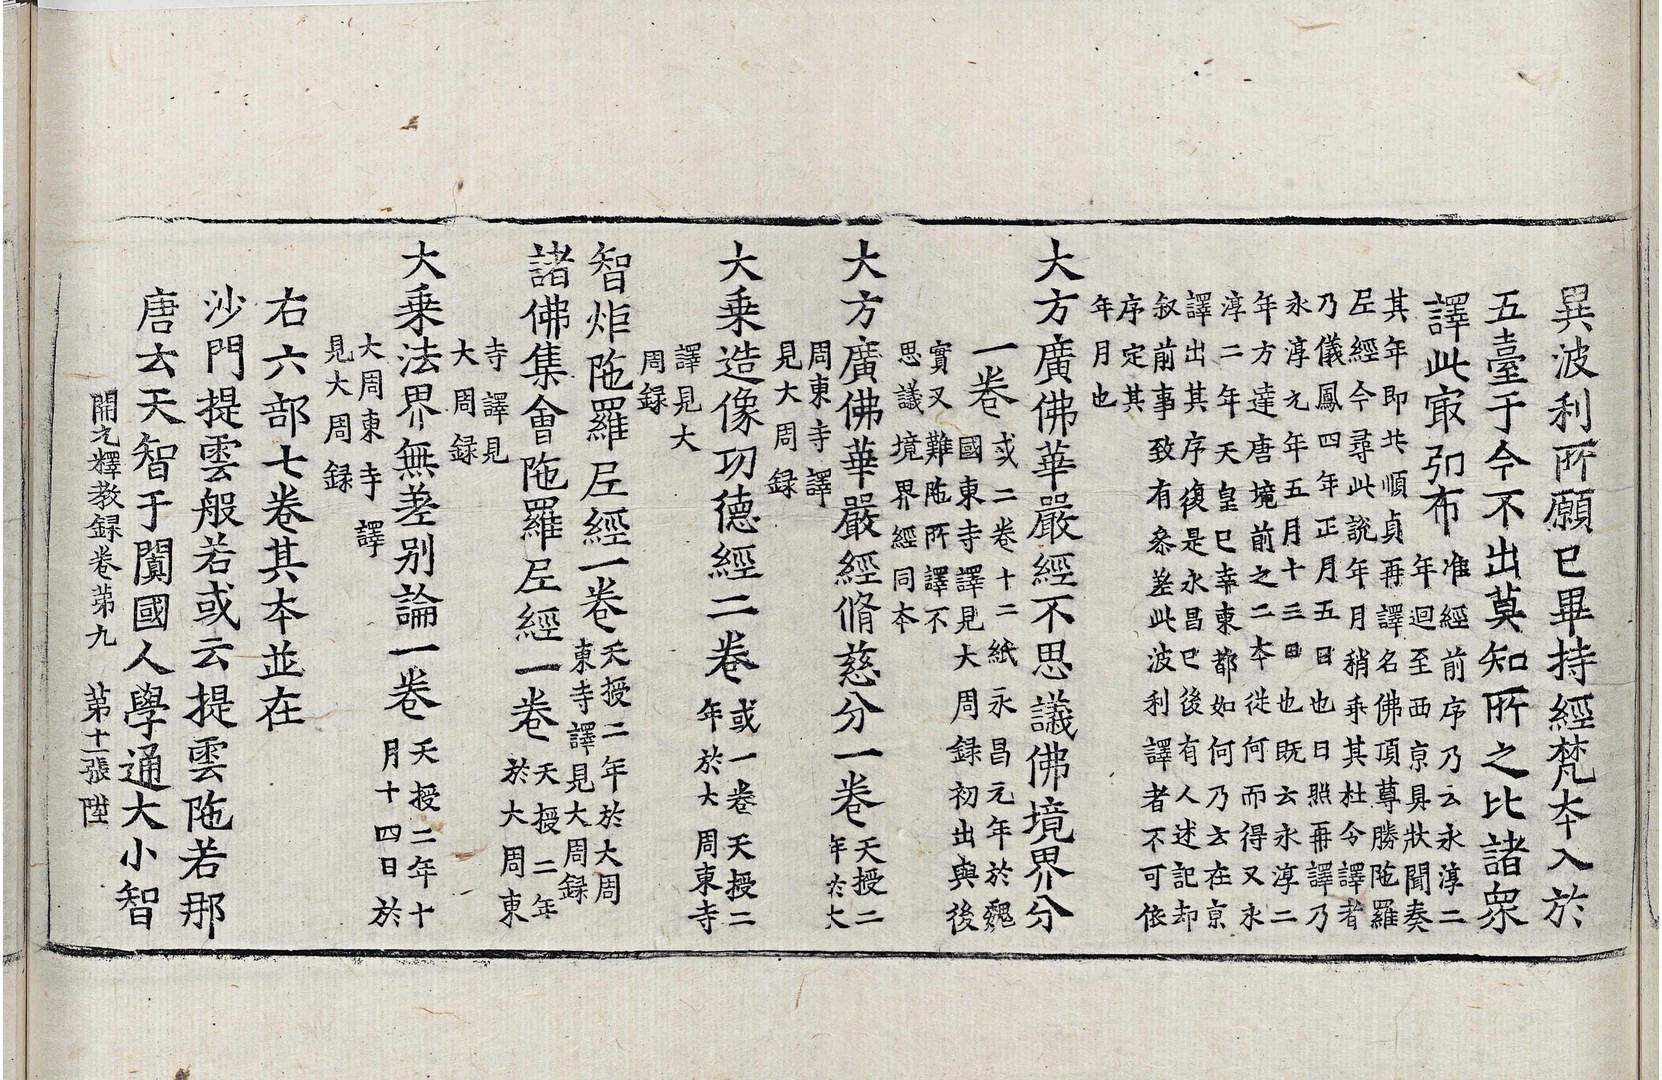 異波利所願已畢持經梵本入於
五臺于今不出莫知所之比諸眾
譯此㝡弘布
准經前序乃云永淳二
年迴至西京具狀聞奏
其年即共順貞再譯名佛頂尊勝陁羅
尼經今尋此說年月稍乖其杜令譯者
乃儀鳳四年正月五日也日照再譯乃
永淳元年五月十三日也既云永淳二
年方達唐境前之二本從何而得又永
淳二年天皇已幸東都如何乃云在京
譯出其序復是永昌已後有人述記却
叙前事致有叅差此波利譯者不可依
序定其
年月也
大方廣佛華嚴經不思議佛境界分
一卷
或二卷十二紙永昌元年於魏
國東寺譯見大周録初出與後
實叉難陁所譯不
思議境界經同本
大方廣佛華嚴經脩慈分一卷
天授二
年於大
周東寺譯
見大周録
大乗造像功德經二卷
或一卷天授二
年於大周東寺
譯見大
周録
智炬陁羅尼經一卷
天授二年於大周
東寺譯見大周録
諸佛集會陁羅尼經一卷
天授二年
於大周東
寺譯見
大周録
大乗法界無差别論一卷
天授二年十
月十四日於
大周東寺譯
見大周録
右六部七卷其本並在
沙門提雲般若或云提雲陁若那
唐云天智于闐國人學通大小智
開元釋教録卷第九 第十一張 陞